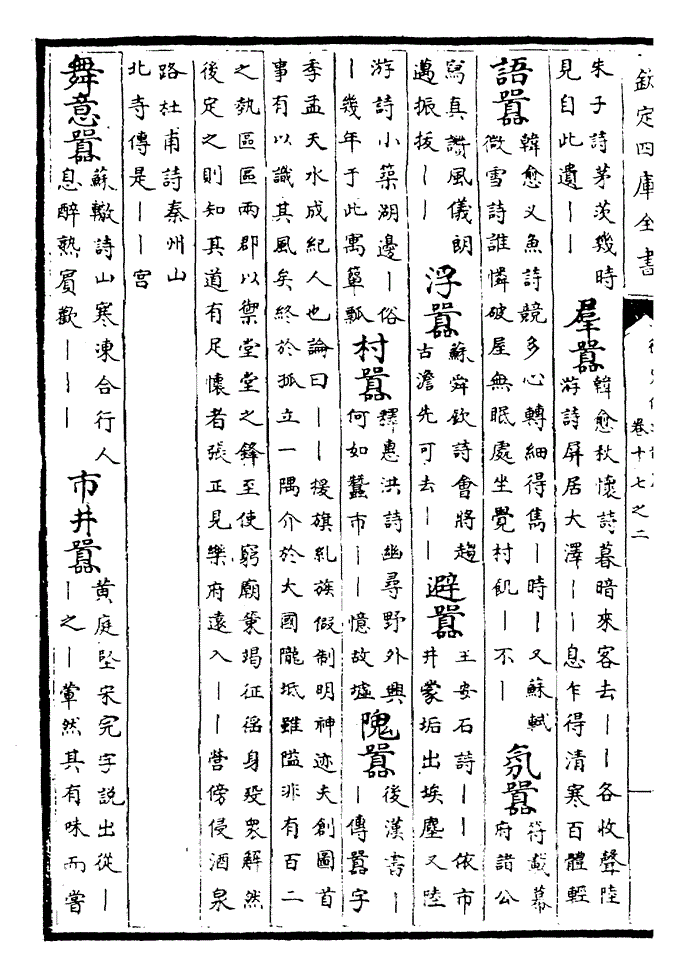 欽定四庫全書
卷十七之二
朱子詩茅茨幾時
見自此遺丨丨
羣囂
韓愈秋懷詩暮暗來客去丨丨各收聲陸
游詩屏居大澤丨丨息乍得清寒百體輕
語囂
韓愈义魚詩競多心轉細得雋丨時丨又蘇軾
微雪詩誰憐破屋無眠處坐覺村飢丨不丨
氛囂
符載幕
府諸公
寫真讚風儀朗
邁振拔丨丨
浮囂
蘇舜欽詩會將趨
古澹先可去丨丨
避囂
王安石詩丨丨依市
井蒙垢出埃塵又陸
游詩小築湖邊丨俗
丨幾年于此寓簞瓢
村囂
釋惠洪詩幽尋野外興
何如蠶市丨丨憶故墟
隗囂
後漢書丨
丨傳囂字
季孟天水成紀人也論曰丨丨援旗糺族假制明神迹夫創圖首
事有以識其風矣終於孤立一隅介於大國隴坻雖隘非有百二
之埶區區兩郡以禦堂堂之鋒至使窮廟策竭征徭身殁衆解然
後定之則知其道有足懷者張正見樂府遠入丨丨營傍侵酒泉
路杜甫詩秦州山
北寺傳是丨丨宫
舞意囂
蘇轍詩山寒凍合行人
息醉熟賓歡丨丨丨
市井囂
黄庭堅宋完字説出從丨
丨之丨葷然其有味而嘗